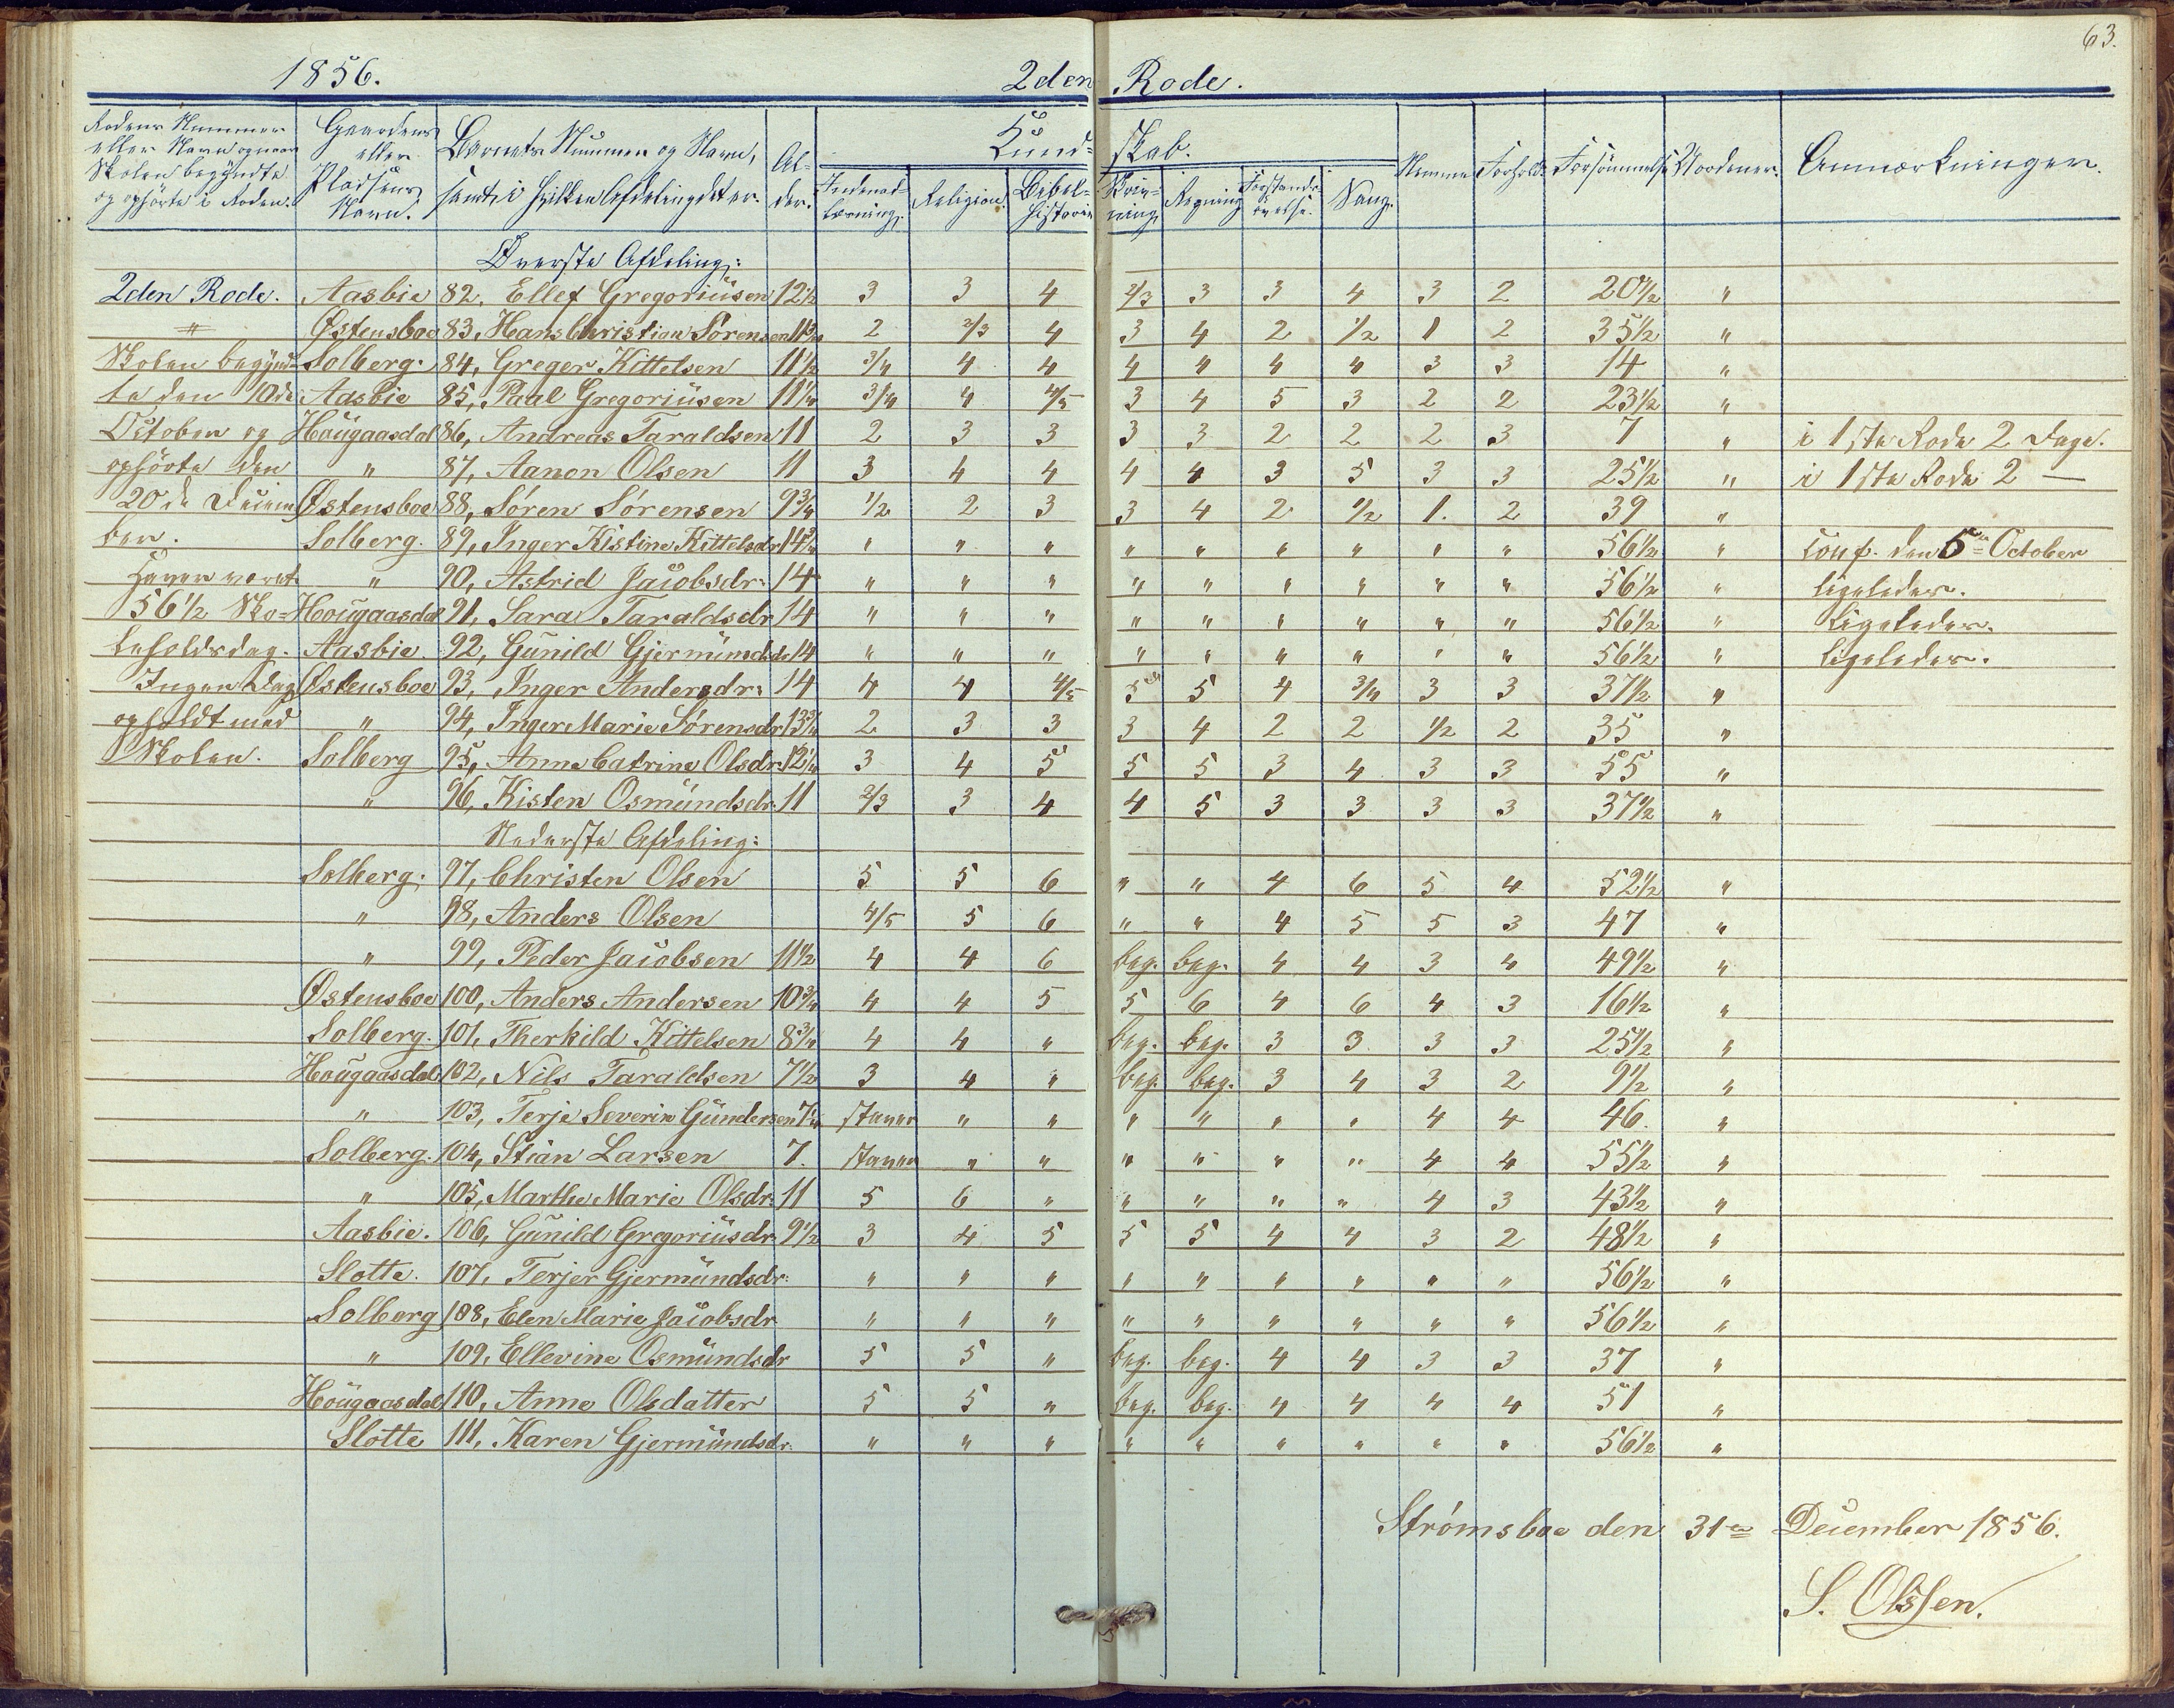 63.
1856. 2den Rode.
Rodens Nummer eller Navn og naar Skolen begyndte og ophörte i Roden.
Gaardens eller Pladsens Navn.
Barnets Nummer og Navn, samt i hvilken Afdeling det er.
Al- der.
Kund- skab.
Indenad- læsning.
Religion.
Bibel- historie
Skriv- ning.
Regning
Forstands- övelse.
Sang.
Nemme
Forhold.
Forsömmelse
Anmærkninger.
Øverste Afdeling:
2den Rode. Aasbie 82, Ellef Gregoriusen 12 1/2 3 3 4 2/3 3 3 4 3 2 20 1/2 "
" Østensboe 83, Hans Christian Sörensen 11 3/4 2 2/3 4 3 4 2 1/2 1 2 35 1/2 "
Skolen begynd- Solberg. 84, Greger Kittelsen 11 1/2 3/4 4 4 4 4 4 4 3 3 14 "
te den 10de Aasbie 85, Paul Gregoriusen 11 1/4 3/4 4 4/5 3 4 5 3 2 2 23 1/2 "
October og Hougaasdal 86, Andreas Taraldsen 11 2 3 3 3 3 2 2 2 3 7 " i 1ste Rode 2 Dage.
ophörte den " 87, Aanon Olsen 11 3 4 4 4 4 3 5 3 3 25 1/2 " i 1ste Rode 2 —
20de Decem Østensboe 88, Sören Sörensen 9 3/4 1/2 2 3 3 4 2 1/2 1. 2 39 "
ber. Solberg. 89, Inger Kistine Kittelsdr 14 3/4 " " " " " " " " " 56 1/2 " Conf. den 5te October
Haver været " 90, Astrid Jacobsdr. 14 " " " " " " " " " 56 1/2 " ligeledes.
56 1/2 Sko- Hougaasdal 91, Sara Taraldsdr 14 " " " " " " " " " 56 1/2 " Ligeledes.
leholdsdag. Aasbie. 92, Gunild Gjermundsdr 14 " " " " " " " " " 56 1/2 " ligeledes.
Ingen Dag Østensboe 93, Inger Andersdr. 14 4 4 4/5 5 5 4 3/4 3 3 37 1/2 "
opholdt med " 94, Inger Marie Sörensdr 13 3/4 2 3 3 3 4 2 2 1/2 2 35 "
Skolen. Solberg 95, Anne Catrine Olsdr. 12 1/4 3 4 5 5 5 3 4 3 3 55 "
" 96, Kisten Osmundsdr. 11 2/3 3 4 4 5 3 3 3 3 37 1/2 "
Nederste Afdeling:
Solberg. 97, Christen Olsen 5 5 6 " " 4 6 5 4 52 1/2 "
" 98, Anders Olsen 4/5 5 6 " " 4 5 5 3 47 "
" 99, Peder Jacobsen 11 1/2 4 4 6 beg. beg. 4 4 3 4 49 1/2 "
Østensboe 100, Anders Andersen 10 3/4 4 4 5 5 6 4 6 4 3 16 1/2 "
Solberg. 101, Therkild Kittelsen 8 3/4 4 4 " beg. beg. 3 3 3 3 25 1/2 "
Hougaasdal 102, Nils Taraldsen 7 1/2 3 4 " beg. beg. 3 4 3 2 9 1/2 "
" 103, Terje Severin Gundersen 7 1/4 staver " " " " " " 4 4 46. "
Solberg. 104, Stian Larsen 7. staver " " " " " " 4 4 55 1/2 "
" 105, Marthe Marie Olsdr. 11 5 6 " " " " " 4 3 43 1/2 "
Aasbie. 106, Gunild Gregoriusdr. 9 1/2 3 4 5 5 5 4 4 3 2 48 1/2 "
Slotte. 107, Terjer Gjermundsdr. " " " " " " " " " 56 1/2 "
Solberg 108, Elen Marie Jacobsdr " " " " " " " " " 56 1/2 "
" 109, Ellevine Osmundsdr 5 5 " beg. beg. 4 4 3 3 37 "
Hougaasdal 110, Anne Olsdatter 5 5 " beg. beg. 4 4 4 4 51 "
Slotte 111, Karen Gjermundsdr. " " " " " " " " " 56 1/2 "
Strömsboe den 31te December 1856.
S. Olssen.